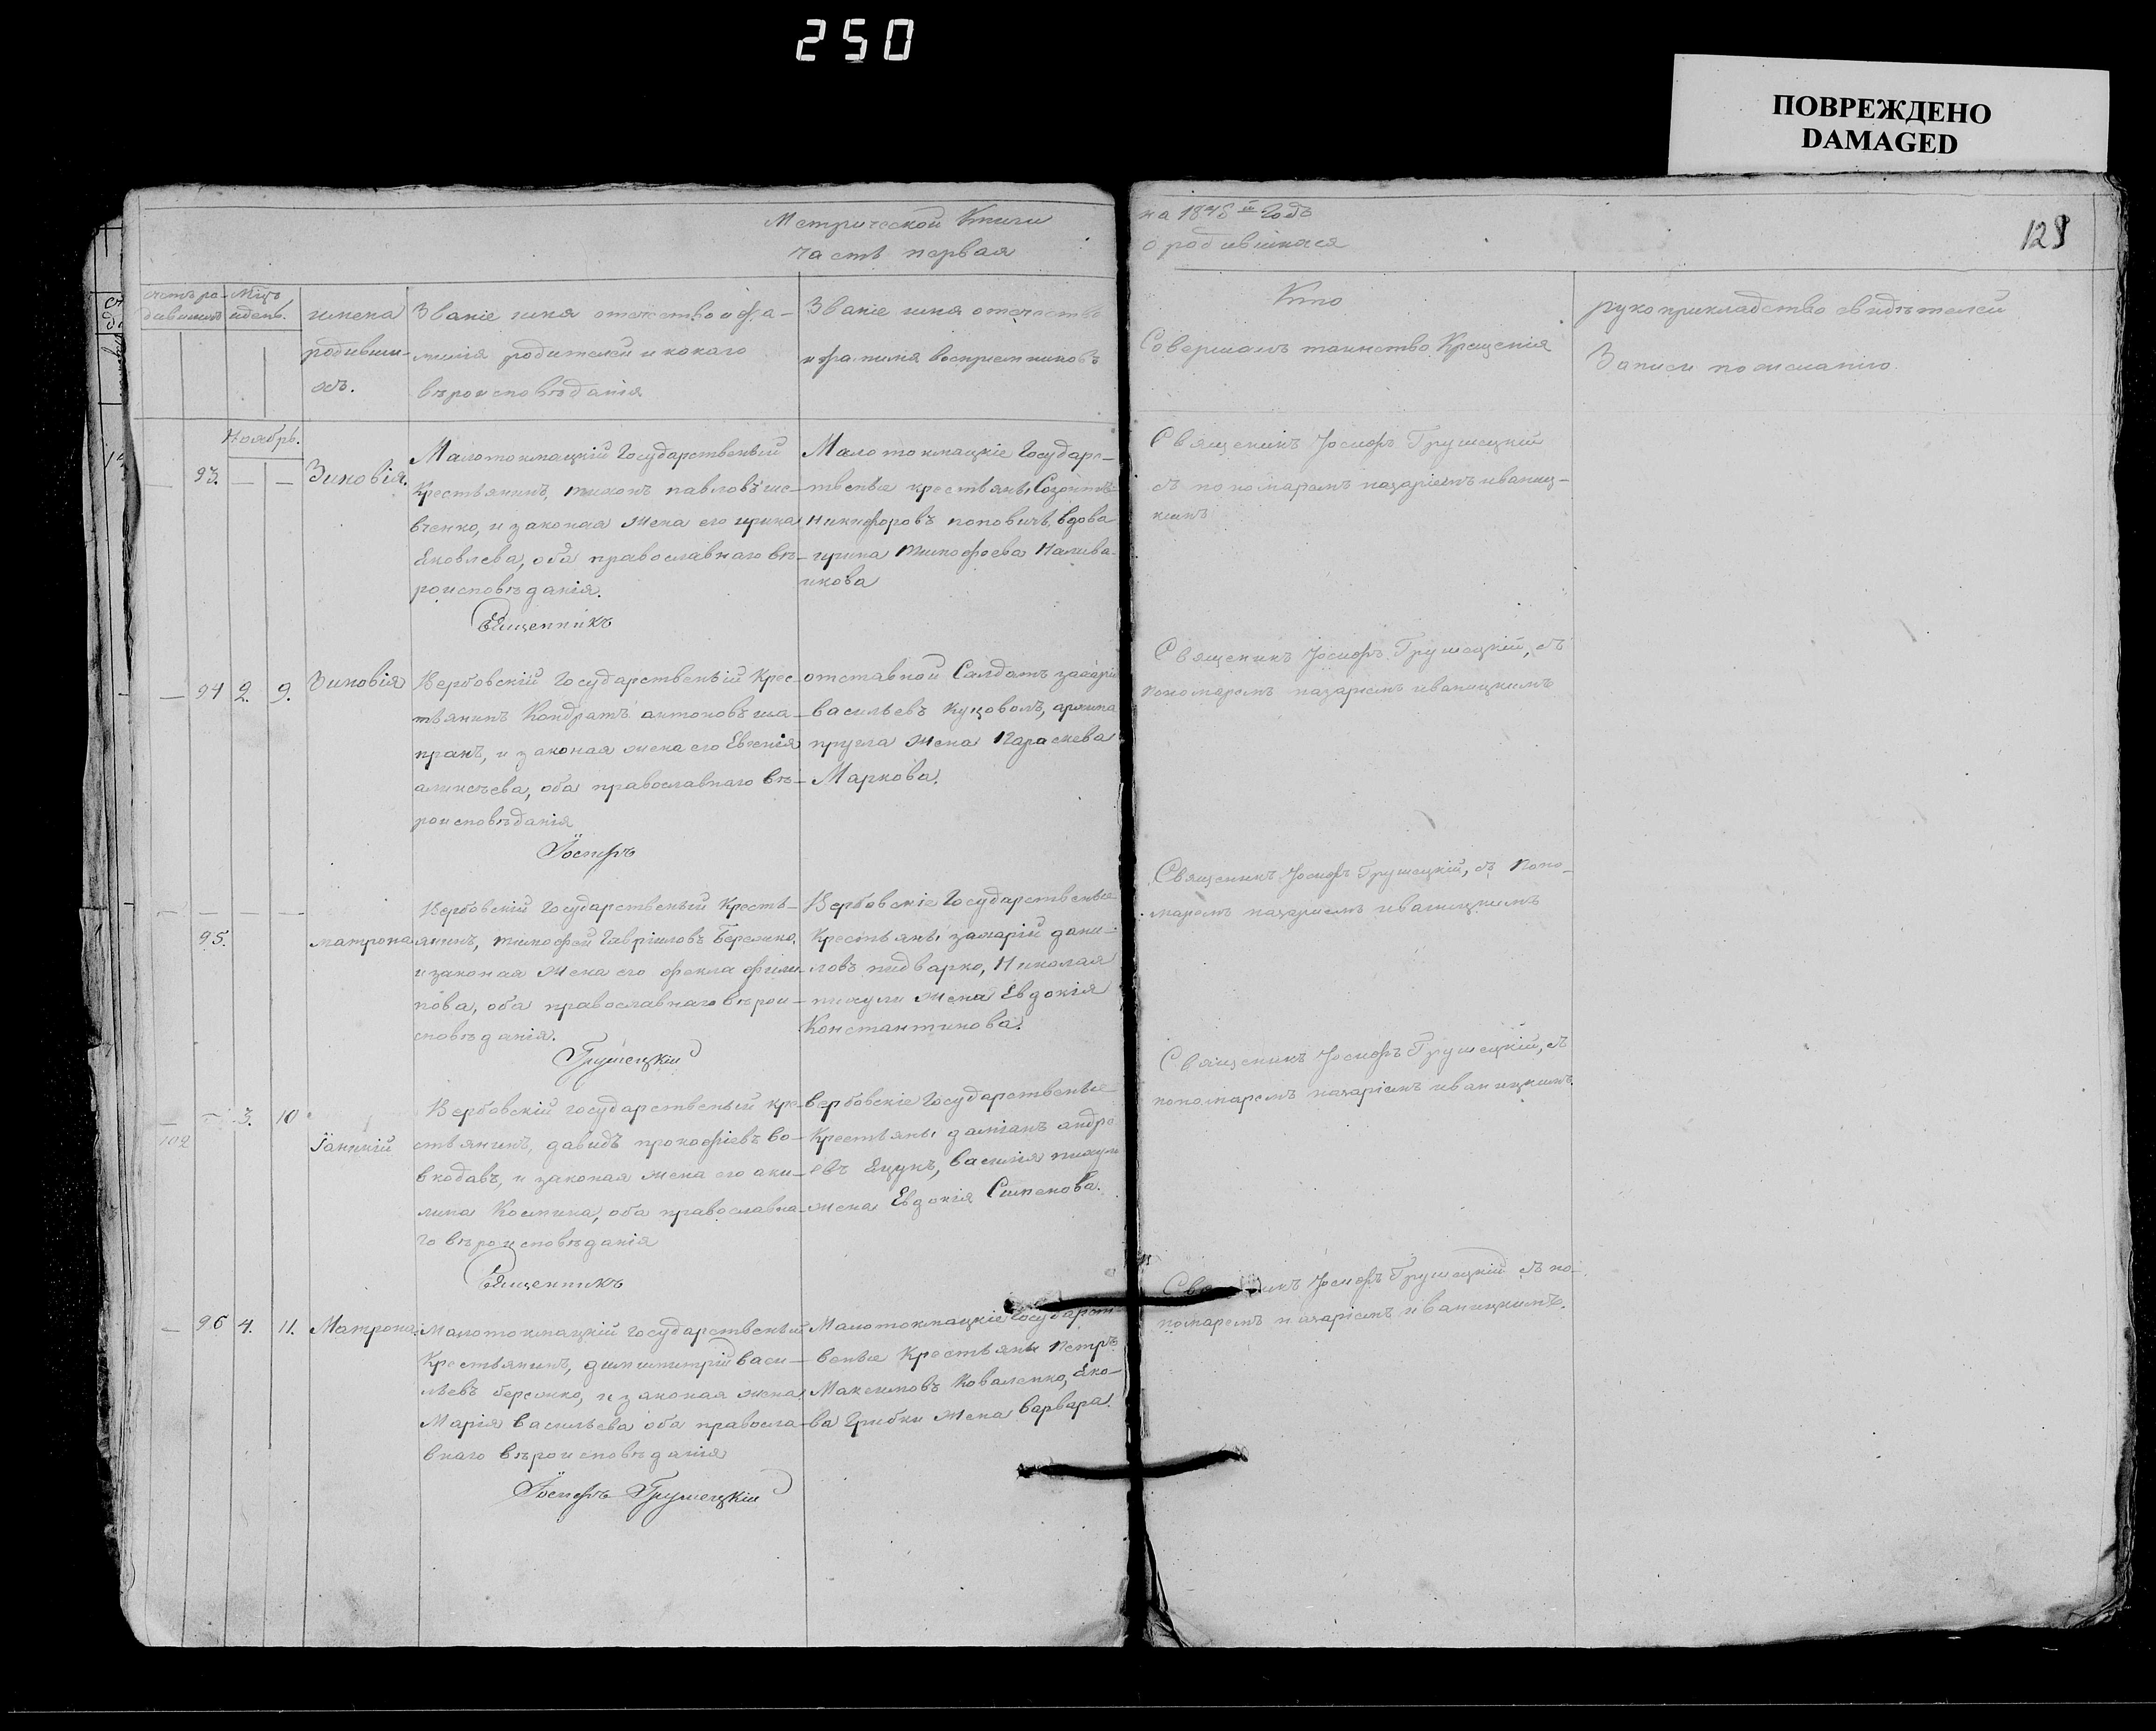 250
ПОВРЕЖДЕНО
DAMAGED
Метрической Книги
часть первая
на 1848й Годъ
о родившихся
129
Мѣцъ
и день.
имена
родивши-
хъ.
Званіе имя отечество и фа-
милія родителей и какаго
вѣроисповѣданія
Званіе имя отечество
и фамилія воспріемниковъ
Кто
Совершалъ таинство Крещенія
рукоприкладство свидѣтелей
Записи по желанію
Ноябрь.
93.
Зиновія.
Малотокмацкій Государственый
Крестьянинъ, тихонъ павловъ ше-
вченко, и законая жена его ирина
Яковлева, оба православнаго вѣ-
роисповѣданія.
Священникъ
Малотокмацкіе Государс-
твеныя крестьяны Созонтъ
никифоровъ поповичъ, вдова
ирина тимофеева Налива-
икова
Священикъ Іосифъ Грушецкій
съ пономаремъ назаріемъ иваниц-
кимъ
94 2. 9.
Зиновія
Вербовскій Государственый Крес-
тьянинъ Кондратъ антоновъ ша-
пранъ, и законая жена его Евгенія
аликсѣева, оба православнаго вѣ-
роисповѣданія
Іосифъ
отставной Салдатъ
васильевъ Куцоволъ, архипа
жена Параскева
Маркова.
Священикъ Іосифъ Грушецкій, съ
пономаремъ назаріемъ иваницкимъ
95.
матрона
Вербовскій Государственый Кресть-
янинъ, тимофей Гавріиловъ Бережко,
и законая жена его фекла фили-
пова, оба православнаго вѣрои-
сповѣданія.
Грушецкій
Вербовскіе Государственые
Крестьяны захарій дани-
ловъ пидварко, Николая
пихули жена Евдокія
Константинова.
Священикъ Іосифъ Грушецкій, съ Поно-
маремъ назаріемъ иваницкимъ
102
3. 10
Іаникій
Вербовскій государственый кре-
стьянинъ, давидъ прокофіевъ во-
вкодавъ, и законая жена его аки-
лина Космина, оба православна-
го вѣроисповѣданія
Священникъ
вербовскіе Государственые
Крестьяны даміанъ андре
евъ Яцукъ, василія пихули
жена Евдокія Сименова.
Священикъ Іосифъ Грушецкій, съ
пономаремъ назаріемъ иваницкимъ
96 4. 11.
Матрона
Малотокмацкій государственый
Крестьянинъ, димитрій васи-
льевъ бережко, и законая жена
Марія васильева оба правосла-
внаго вѣроисповѣданія
Іосифъ Грушецкій
Малотокмацкіе Государст
веные Крестьяны Петръ
Максимовъ Коваленко, Яко-
ва Грибки жена варвара.
Іосифъ Грушецкій съ по-
номаремъ назаріемъ иваницкимъ.